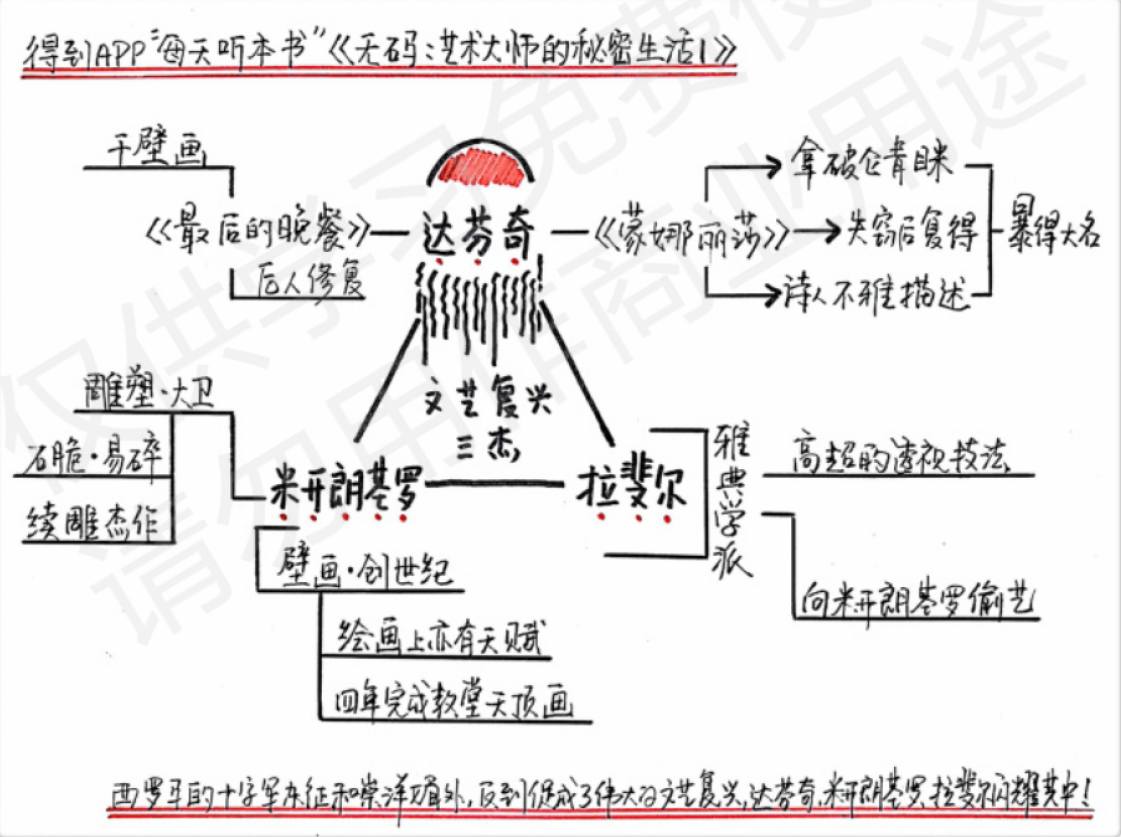 得到APP“每天听本书”《无码:艺术大师的秘密生活1》
干壁画
《最后的晚餐》
后人修复
达芬奇
《蒙娜丽莎》
拿破仑青睐
失窃后复得
诗人不雅描述
暴得大名
文艺复兴
三杰
雕塑·大卫
石脆·易碎
续雕杰作
米开朗基罗
壁画·创世纪
绘画上亦有天赋
四年完成教堂天顶画
拉斐尔
雅典学派
高超的透视技法
向米开朗基罗偷艺
西罗马的十字军东征和崇洋媚外,反到促成了伟大的文艺复兴,达芬奇、米开朗基罗、拉斐尔闪耀其中!
仅供学习免费使
请勿用作商业用途